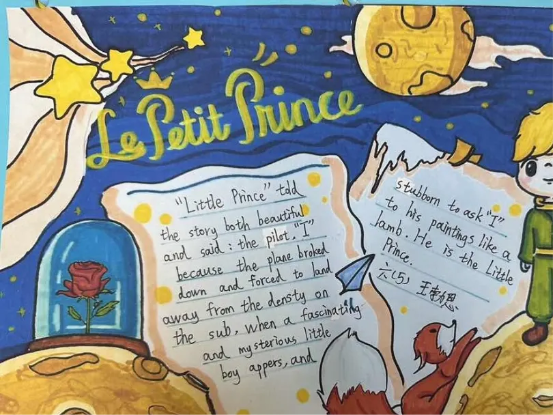 Le Petit Prince
"Little Prince" told
the story both beautiful
and said: the pilot. "I"
because the plane broked
down and forced to land
away from the densty on
the sub. when a fascinating
and mysterious little
boy appers, and
stubborn to ask "I"
to his paintings like a
lamb. He is the Little
Prince.
六(5) 王